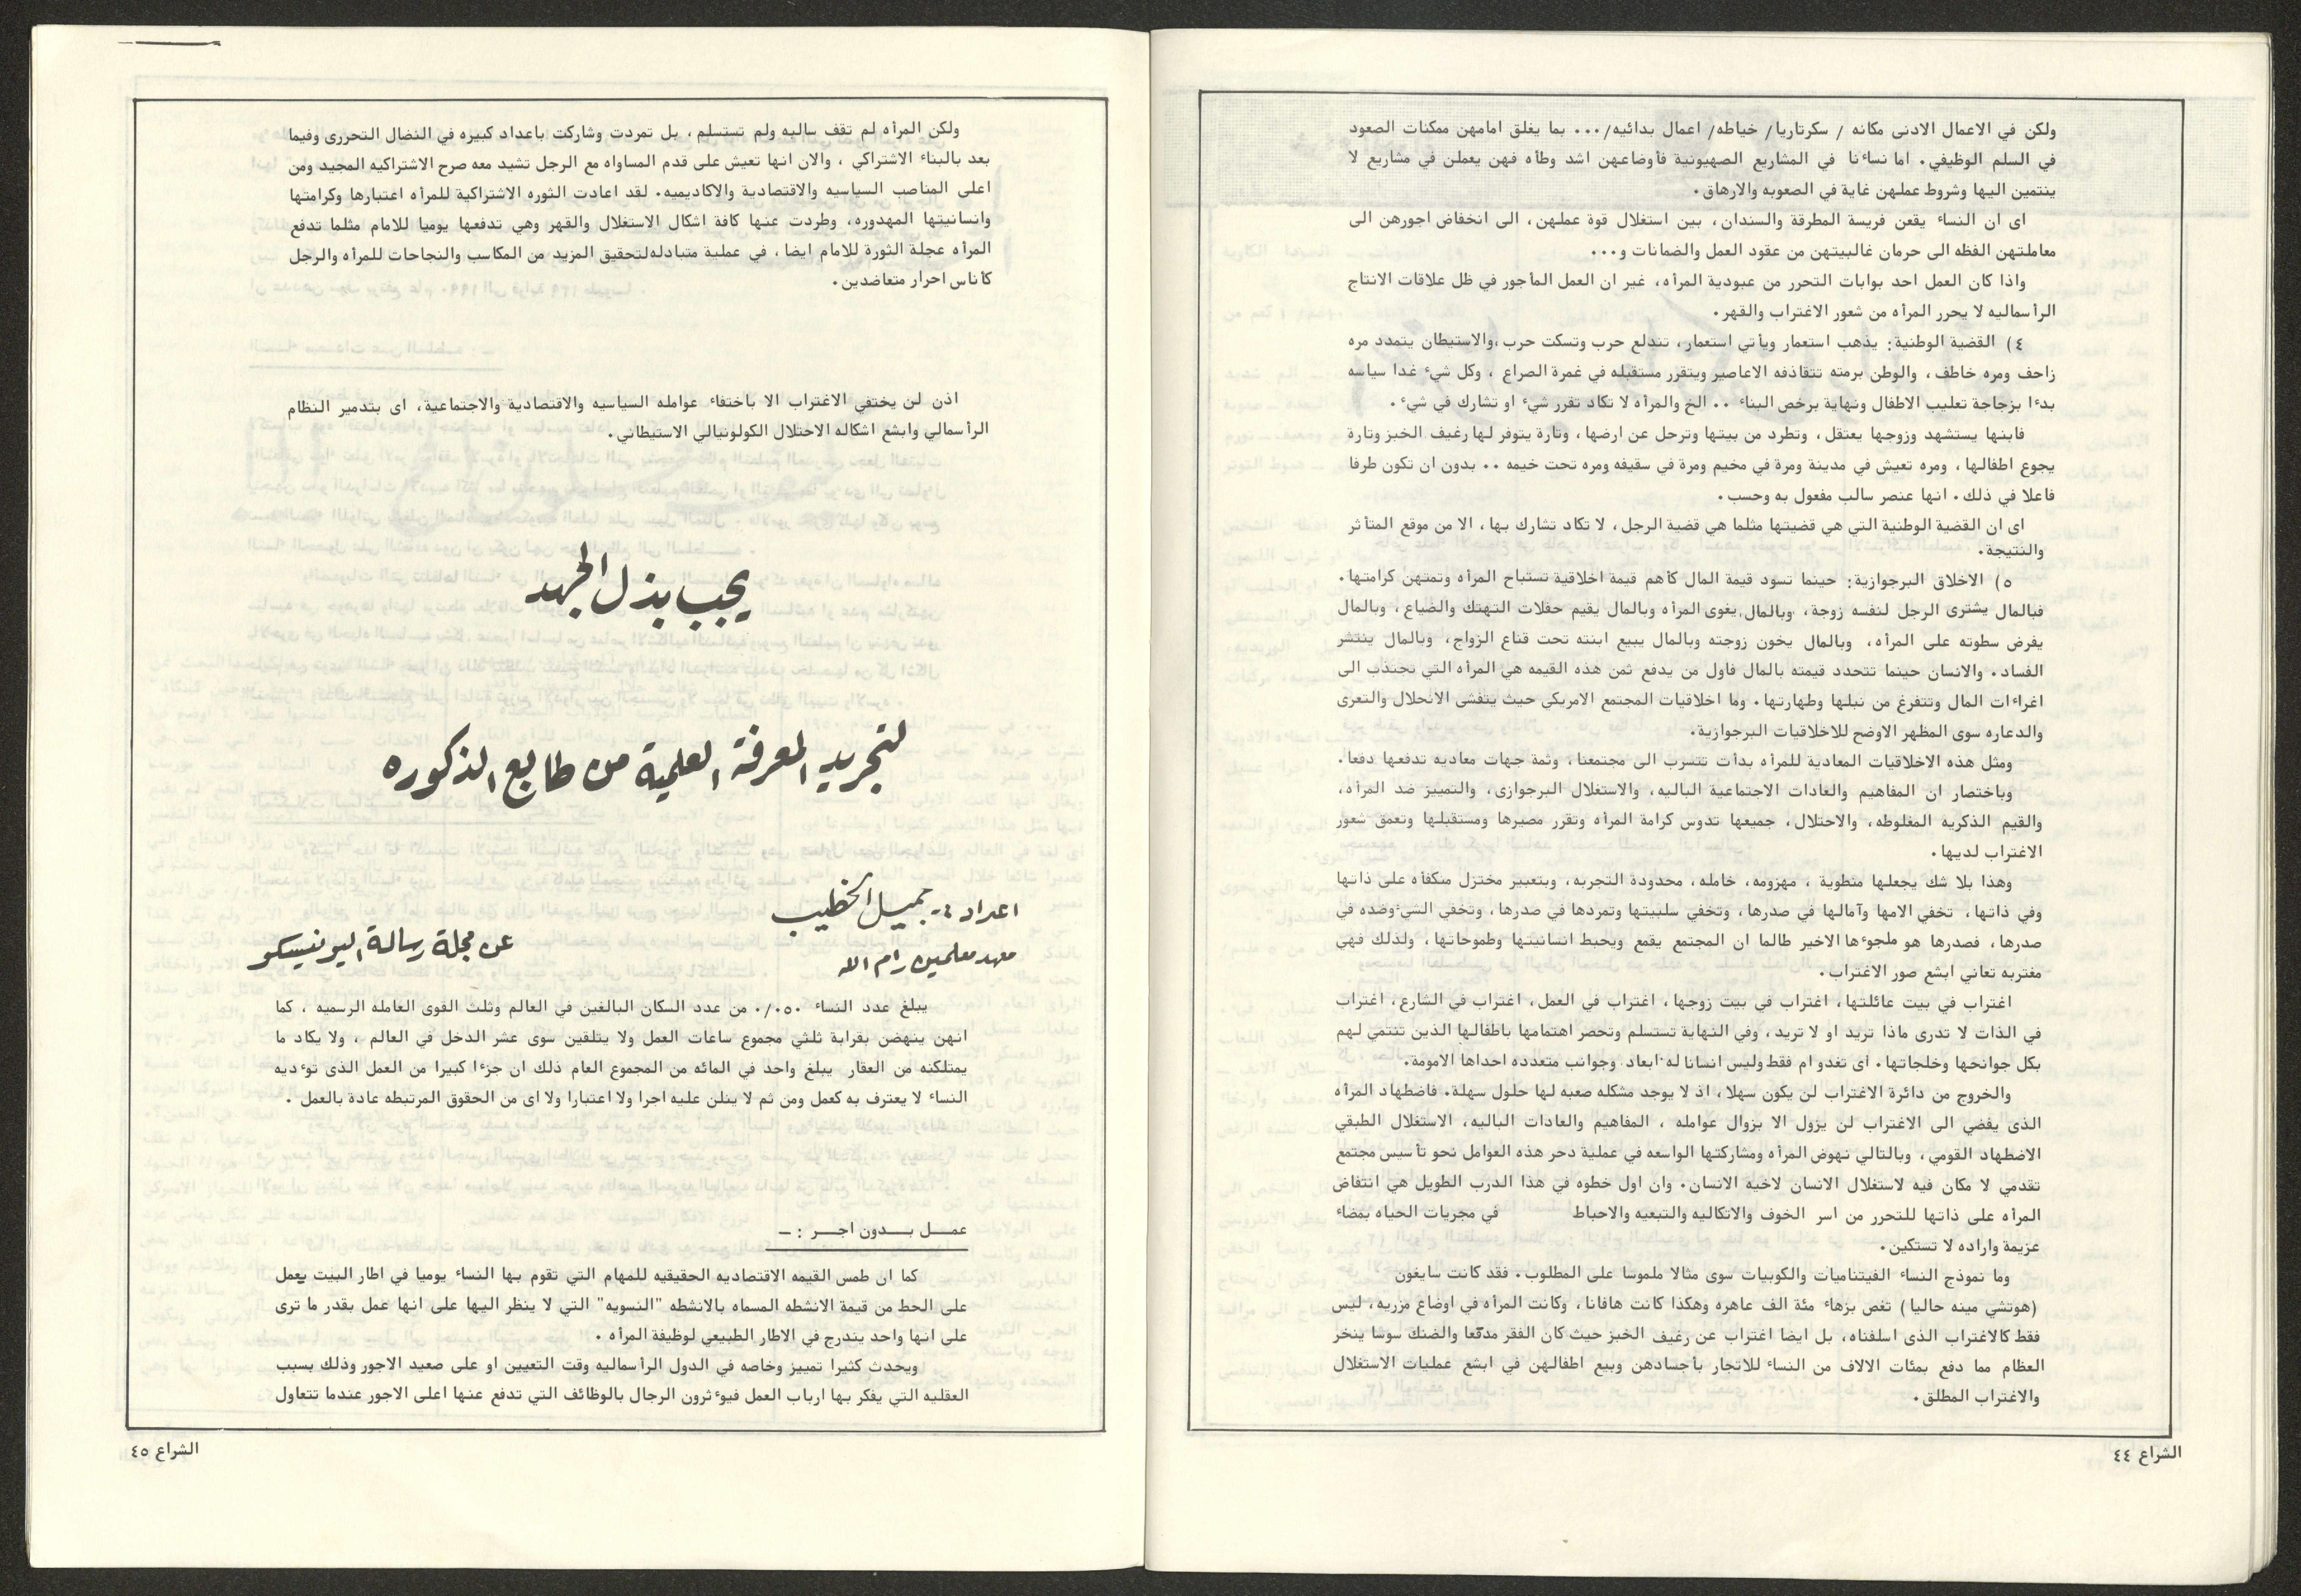 ولكن في الاعمال الادنى مكانه / سكرتاريا/ خياطه/ اعمال بدائيه/... بما يغلق امامهن ممكنات الصعود
في السلم الوظيفي. اما نساءنا في المشاريع الصهيونية فأوضاعهن اشد وطأه فهن يعملن في مشاريع لا
ينتمين اليها وشروط عملهن غاية في الصعوبه والارهاق.
اى ان النساء يقعن فريسة المطرقة والسندان، بين استغلال قوة عملهن، الى انخفاض اجورهن الى
معاملتهن الفظه الى حرمان غالبيتهن من عقود العمل والضمانات و...
واذا كان العمل احد بوابات التحرر من عبودية المرأه، غير ان العمل المأجور في ظل علاقات الانتاج
الرأسماليه لا يحرر المرأه من شعور الاغتراب والقهر.
٤) القضية الوطنية: يذهب استعمار ويأتي استعمار، تندلع حرب وتسكت حرب،والاستيطان يتمدد مره
زاحف ومره خاطف، والوطن برمته تتقاذفه الاعاصير ويتقرر مستقبله في غمرة الصراع ، وكل شيء غدا سياسه
بدءا بزجاجة تعليب الاطفال ونهاية برخص البناء .. الخ والمرأه لا تكاد تقرر شيء او تشارك في شيء.
فابنها يستشهد وزوجها يعتقل، وتطرد من بيتها وترحل عن ارضها، وتارة يتوفر لها رغيف الخبز وتارة
يجوع اطفالها، ومره تعيش في مدينة ومرة في مخيم ومرة في سقيفه ومره تحت خيمه .. بدون ان تكون طرفا
فاعلا في ذلك. انها عنصر سالب مفعول به وحسب.
اى ان القضية الوطنية التي هي قضيتها مثلما هي قضية الرجل، لا تكاد تشارك بها، الا من موقع المتأثر
والنتيجة.
٥) الاخلاق البرجوازية: حينما تسود قيمة المال كأهم قيمة اخلاقية تستباح المرأه وتمتهن كرامتها.
فبالمال يشترى الرجل لنفسه زوجة، وبالمال يغوى المرأه وبالمال يقيم حفلات التهتك والضياع، وبالمال
يفرض سطوته على المرأه، وبالمال يخون زوجته وبالمال يبيع ابنته تحت قناع الزواج، وبالمال ينتشر
الفساد. والانسان حينما تتحدد قيمته بالمال فاول من يدفع ثمن هذه القيمه هي المرأه التي تجتذب الى
اغراءات المال وتتفرغ من نبلها وطهارتها. وما اخلاقيات المجتمع الامريكي حيث يتفشى الانحلال والتعرى
والدعاره سوى المظهر الاوضح للاخلاقيات البرجوازية.
ومثل هذه الاخلاقيات المعادية للمرأه بدأت تتسرب الى مجتمعنا، وثمة جهات معاديه تدفعها دفعا.
وباختصار ان المفاهيم والعادات الاجتماعية الباليه، والاستغلال البرجوازى، والتمييز ضد المرأه،
والقيم الذكريه المغلوطه، والاحتلال، جميعها تدوس كرامة المرأه وتقرر مصيرها ومستقبلها وتعمق شعور
الاغتراب لديها.
وهذا بلا شك يجعلها منطوية ، مهزومه، خامله، محدودة التجربه، وبتعبير مختزل منكفأه على ذاتها
وفي ذاتها، تخفي الامها وآمالها في صدرها، وتخفي سلبيتها وتمردها في صدرها، وتخفي الشيءوضده في
صدرها، فصدرها هو ملجوءها الاخير طالما ان المجتمع يقمع ويحبط انسانيتها وطموحاتها، ولذلك فهي
مغتربه تعاني ابشع صور الاغتراب.
اغتراب في بيت عائلتها، اغتراب في بيت زوجها، اغتراب في العمل، اغتراب في الشارع، اغتراب
في الذات لا تدرى ماذا تريد او لا تريد، وفي النهاية تستسلم وتحصر اهتمامها باطفالها الذين تنتمي لهم
بكل جوانحها وخلجاتها. اى تغدو ام فقط وليس انسانا له ابعاد وجوانب متعدده احداها الامومة.
والخروج من دائرة الاغتراب لن يكون سهلا، اذ لا يوجد مشكله صعبه لها حلول سهلة. فاضطهاد المرأه
الذى يفضي الى الاغتراب لن يزول الا بزوال عوامله ، المفاهيم والعادات الباليه، الاستغلال الطبقي
الاضطهاد القومي، وبالتالي نهوض المرأه ومشاركتها الواسعه في عملية دحر هذه العوامل نحو تأسيس مجتمع
تقدمي لا مكان فيه لاستغلال الانسان لاخيه الانسان. وان اول خطوه في هذا الدرب الطويل هي انتفاض
المرأه على ذاتها للتحرر من اسر الخوف والاتكاليه والتبعيه والاحباط في مجريات الحياه بمضاء
عزيمة واراده لا تستكين.
وما نموذج النساء الفيتناميات والكوبيات سوى مثالا ملموسا على المطلوب. فقد كانت سايغون
(هوتشي مينه حاليا) تغص بزهاء مئة الف عاهره وهكذا كانت هافانا، وكانت المرأه في اوضاع مزريه، ليس
فقط كالاغتراب الذى اسلفناه، بل ايضا اغتراب عن رغيف الخبز حيث كان الفقر مدقعا والضنك سوسا ينخر
العظام مما دفع بمئات الالاف من النساء للاتجار بأجسادهن وبيع اطفالهن في ابشع عمليات الاستغلال
والاغتراب المطلق.
الشراع ٤٤
ولكن المرأه لم تقف سالبه ولم تستسلم، بل تمردت وشاركت باعداد كبيره في النضال التحررى وفيما
بعد بالبناء الاشتراكي ، والان انها تعيش على قدم المساواه مع الرجل تشيد معه صرح الاشتراكيه المجيد ومن
اعلى المناصب السياسيه والاقتصادية والاكاديميه. لقد اعادت الثوره الاشتراكية للمرأه اعتبارها وكرامتها
وانسانيتها المهدوره، وطردت عنها كافة اشكال الاستغلال والقهر وهي تدفعها يوميا للامام مثلما تدفع
المرأه عجلة الثورة للامام ايضا، في عملية متبادله لتحقيق المزيد من المكاسب والنجاحات للمرأه والرجل
كأناس احرار متعاضدين.
اذن لن يختفي الاغتراب الا باختفاء عوامله السياسيه والاقتصادية والاجتماعية، اى بتدمير النظام
الرأسمالي وابشع اشكاله الاحتلال الكولونيالي الاستيطاني.
يجب بذل الجهد
لتجريد المعرفة العلمية من طابع الذكوره
اعداد :- جميل الخطيب
معهد معلمين رام الله
عن مجلة رسالة اليونيسكو
يبلغ عدد النساء ٥٠٠/٠ من عدد السكان البالغين في العالم وثلث القوى العامله الرسميه ، كما
انهن ينهضن بقرابة ثلثي مجموع ساعات العمل ولا يتلقين سوى عشر الدخل في العالم ، ولا يكاد ما
يمتلكنه من العقار يبلغ واحد في المائه من المجموع العام ذلك ان جزءا كبيرا من العمل الذى توءديه
النساء لا يعترف به كعمل ومن ثم لا ينلن عليه اجرا ولا اعتبارا ولا اى من الحقوق المرتبطه عادة بالعمل .
عمــل بــدون اجــر : ـ
كما ان طمس القيمه الاقتصاديه الحقيقيه للمهام التي تقوم بها النساء يوميا في اطار البيت يعمل
على الحط من قيمة الانشطه المسماه بالانشطه "النسويه" التي لا ينظر اليها على انها عمل بقدر ما ترى
على انها واحد يندرج في الاطار الطبيعي لوظيفة المرأه .
ويحدث كثيرا تمييز وخاصه في الدول الرأسماليه وقت التعيين او على صعيد الاجور وذلك بسبب
العقليه التي يفكر بها ارباب العمل فيوءثرون الرجال بالوظائف التي تدفع عنها اعلى الاجور عندما تتعاول
الشراع ٤٥